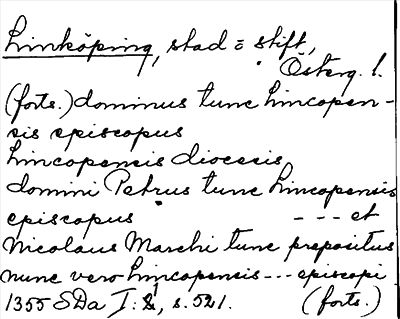 Linköping, stad = stift,
Österg. l.
(forts.) dominus tunc Lincopen-
sis episcopus
Lincopensis diocesis
domini Petrus tunc Lincopensis
episcopus - - - et
Nicolaus Marchi tunc prepositus
nunc vero Lincopensis --- episcopi
1355 SDa I: 1, s. 521. (forts.)